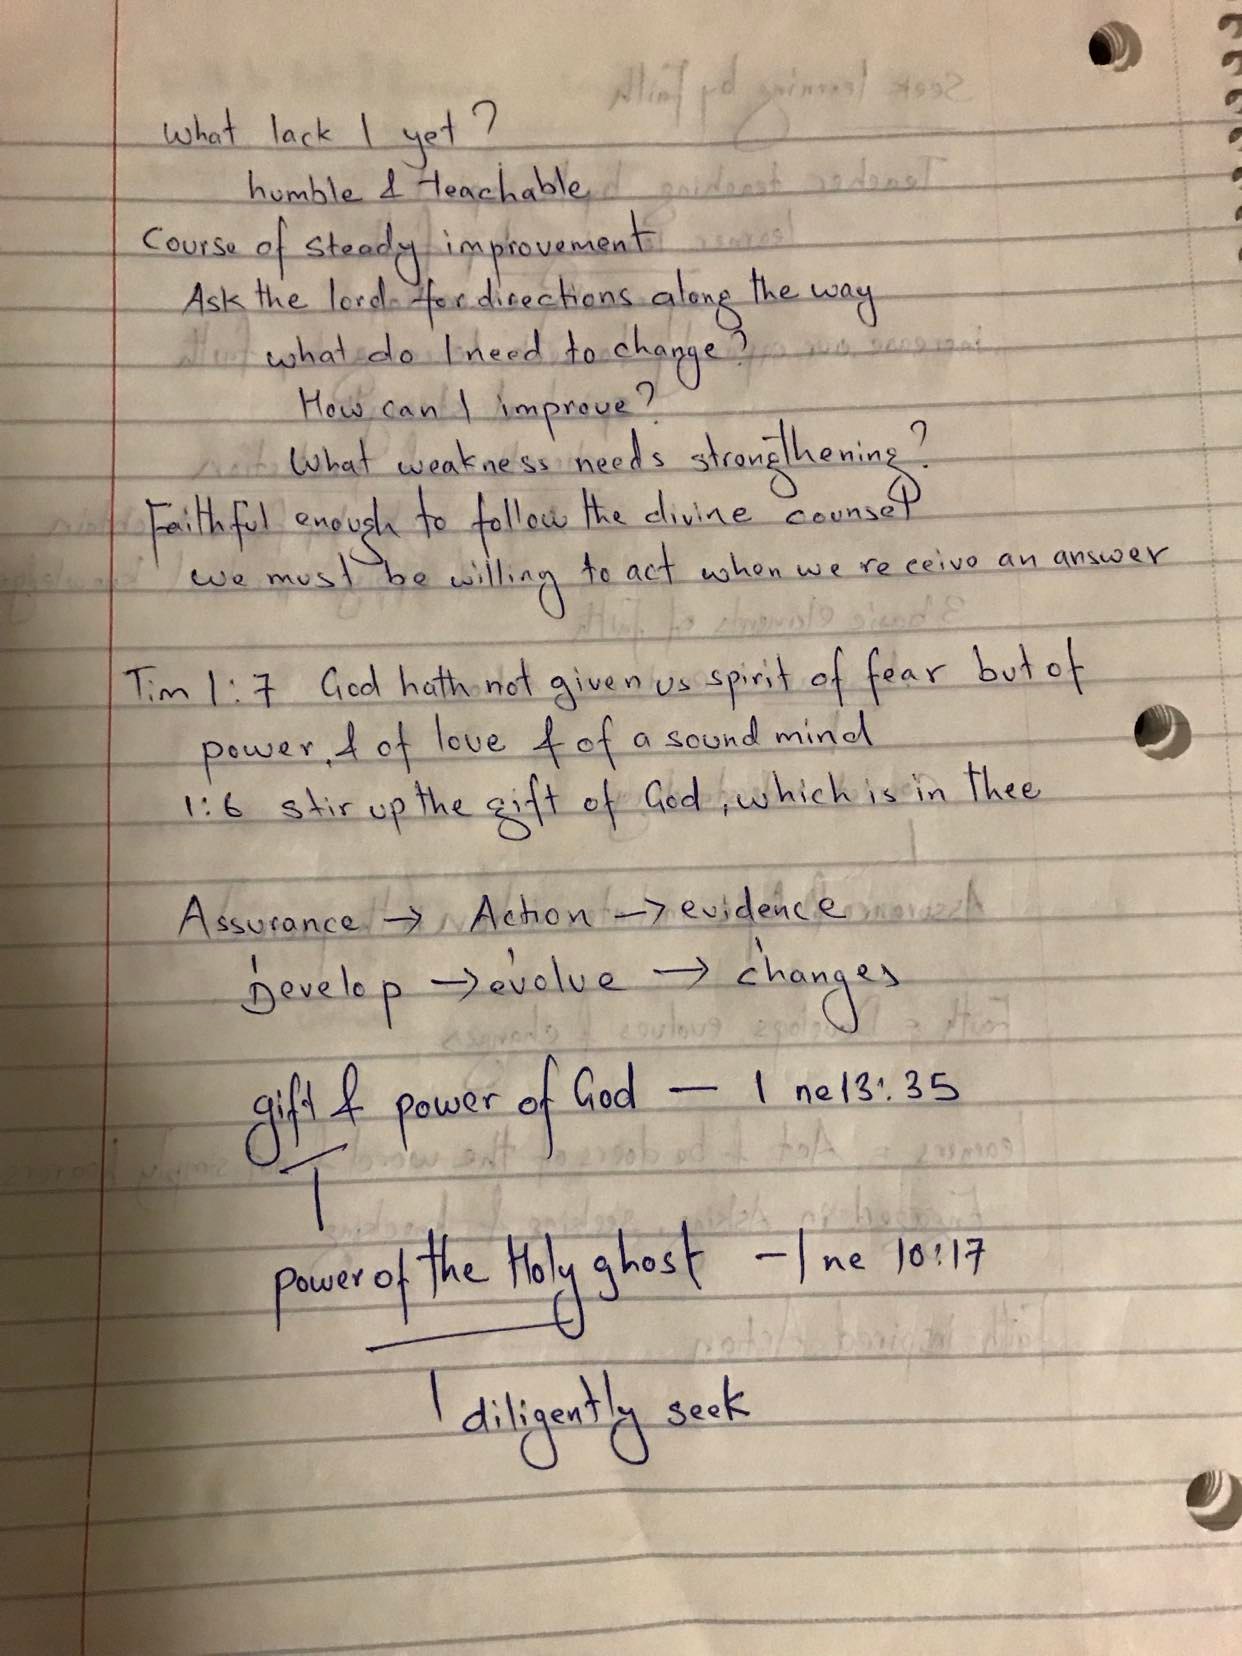 What lack I yet?
humble & teachable
Course of steady improvement
Ask the lord for directions along the way
what do I need to change?
How can I improve?
What weakness needs strongthening?
Faithful enough to follow the divine counsel
we must be willing to act when we receive an answer
Tim 1:7 God hath not given us spirit of fear but of
power, & of love & of a sound mind
1:6 stir up the gift of God, which is in thee
Assurance → Action → evidence
Develop → evolve → changes
gift & power of God — 1 ne 13:35
power of the Holy ghost - 1 ne 10:17
diligently seek